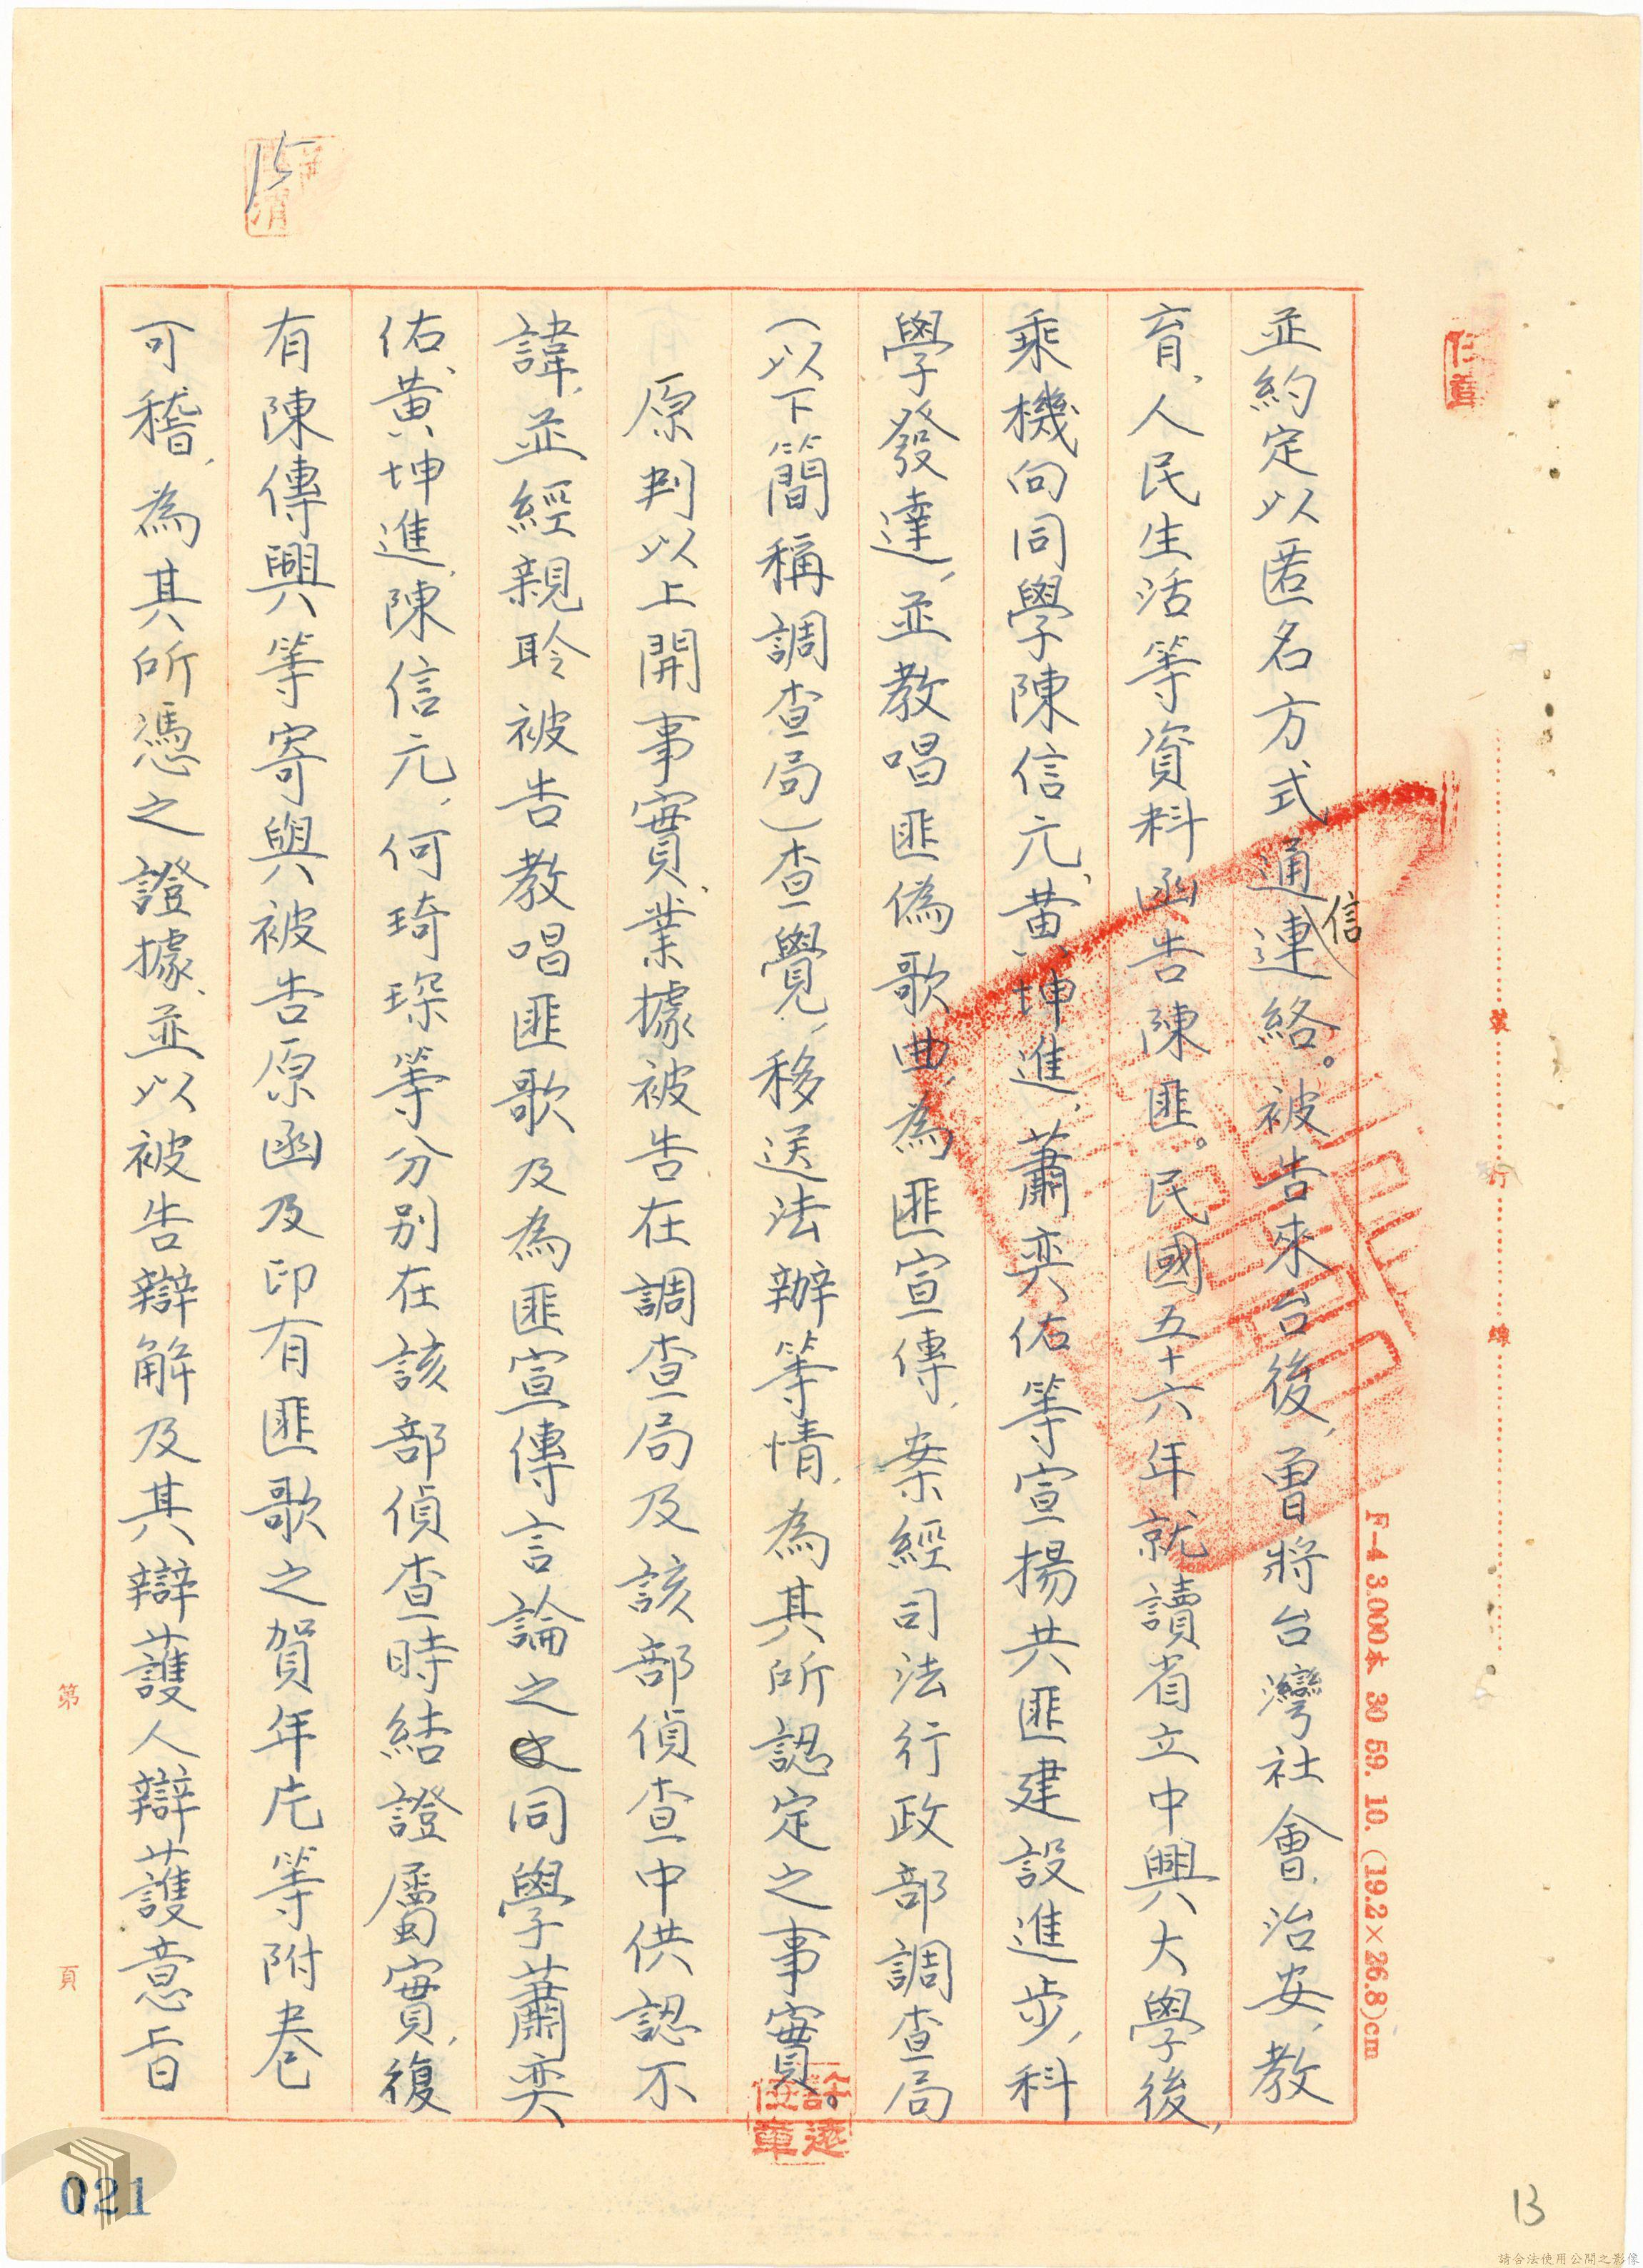 並約定以匿名方式通信連絡。被告來台後,曾將台灣社會、治安、教
育、人民生活等資料函告陳匪。民國五十六年就讀省立中興大學後,
乘機向同學陳信元、黃坤進、蕭奕佑等宣揚共匪建設進步,科
學發達,並教唱匪偽歌曲,為匪宣傳,案經司法行政部調查局
(以下簡稱調查局)查覺,移送法辦等情,為其所認定之事實。
原判以上開事實,業據被告在調查局及該部偵查中供認不
諱,並經親聆被告教唱匪歌及為匪宣傳言論之同學蕭奕
佑、黃坤進、陳信元、何琦琛等分別在該部偵查時結證屬實,復
有陳傳興等寄與被告原函及印有匪歌之賀年片等附卷
可稽,為其所憑之證據,並以被告辯解及其辯護人辯護意旨
15
裝
訂
線
F-4 3.000本 30 59. 10. (19.2×26.8)cm
第
頁
021
13
請合法使用公開之影像